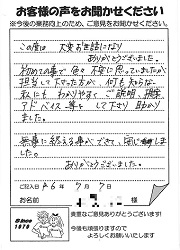 お客様の声をお聞かせください
※今後の業務向上のため、ご意見をお聞かせください。
この度は 大変お世話になり
ありがとうございました。
初めての事で色々不安に思っていましたが
担当して下さった方が、何も知らない
私にも わかりやすく ご説明、
アドバイス等 して下さり 助かり
ました。
無事に終える事ができて、
ありがとうございました。
ご記入日 R6年 7月 7日
お名前 様
Since 1976
貴重なご意見ありがとうございます!
今後も頑張りますので
よろしくお願いいたします